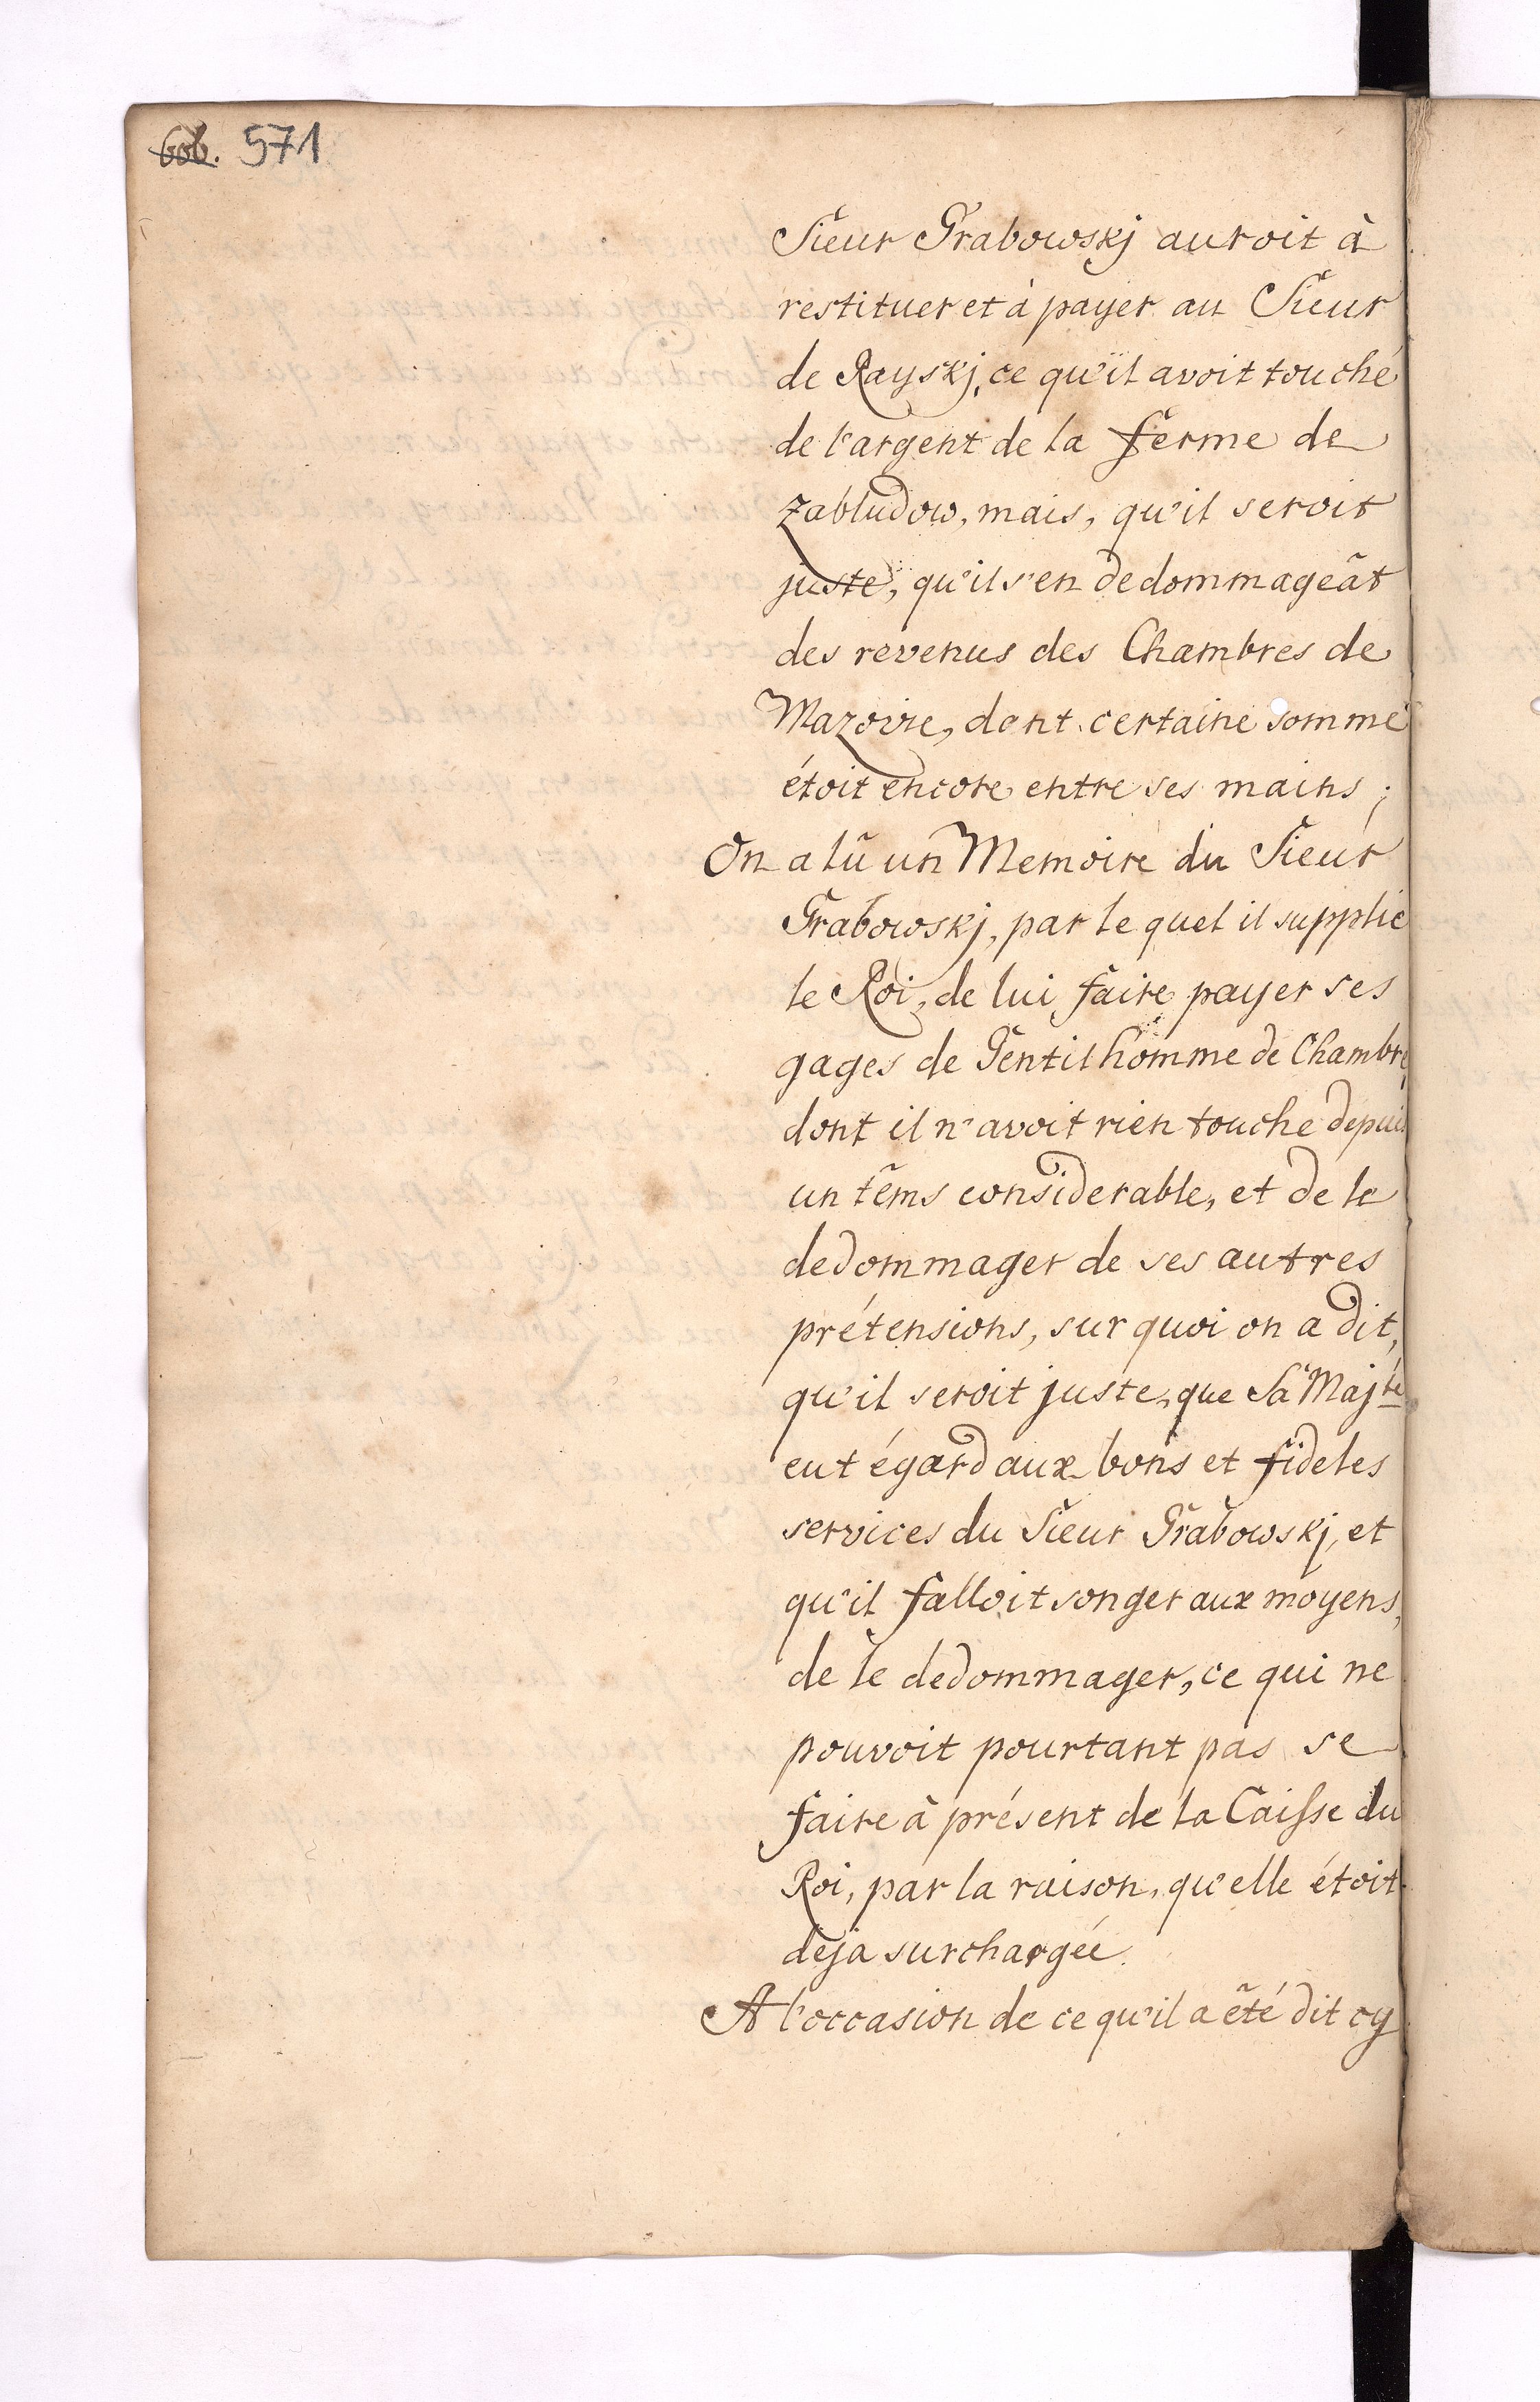 606. 571
Sieur Grabowskj auroit à
restituer et à payer au Sieur
de Rayskj, ce qu'il avoit touché
de l'argent de la ferme de
Zabludow, mais, qu'il seroit
juste, qu'il s'en dedommageât
des revenus des Chambres de
Mazovie, dont certaine somme
étoit encore entre ses mains;
On a lû un Memoire du Sieur
Grabowskj, par le quel il supplie
le Roi, de lui faire payer ses
gages de Gentilhomme de Chambre,
dont il n'avoit rien touché depuis
un tems considerable, et de le
dedommager de ses autres
prétensions, sur quoi on a dit,
qu'il seroit juste, que Sa Majté
eut égard aux bons et fideles
services du Sieur Grabowskj, et
qu'il falloit songer aux moyens,
de le dedommager, ce qui ne
pouvoit pourtant pas se
faire à présent de la Caisse du
Roi, par la raison, qu'elle étoit
deja surchargée.
A l'occasion de ce qu'il a êté dit cy